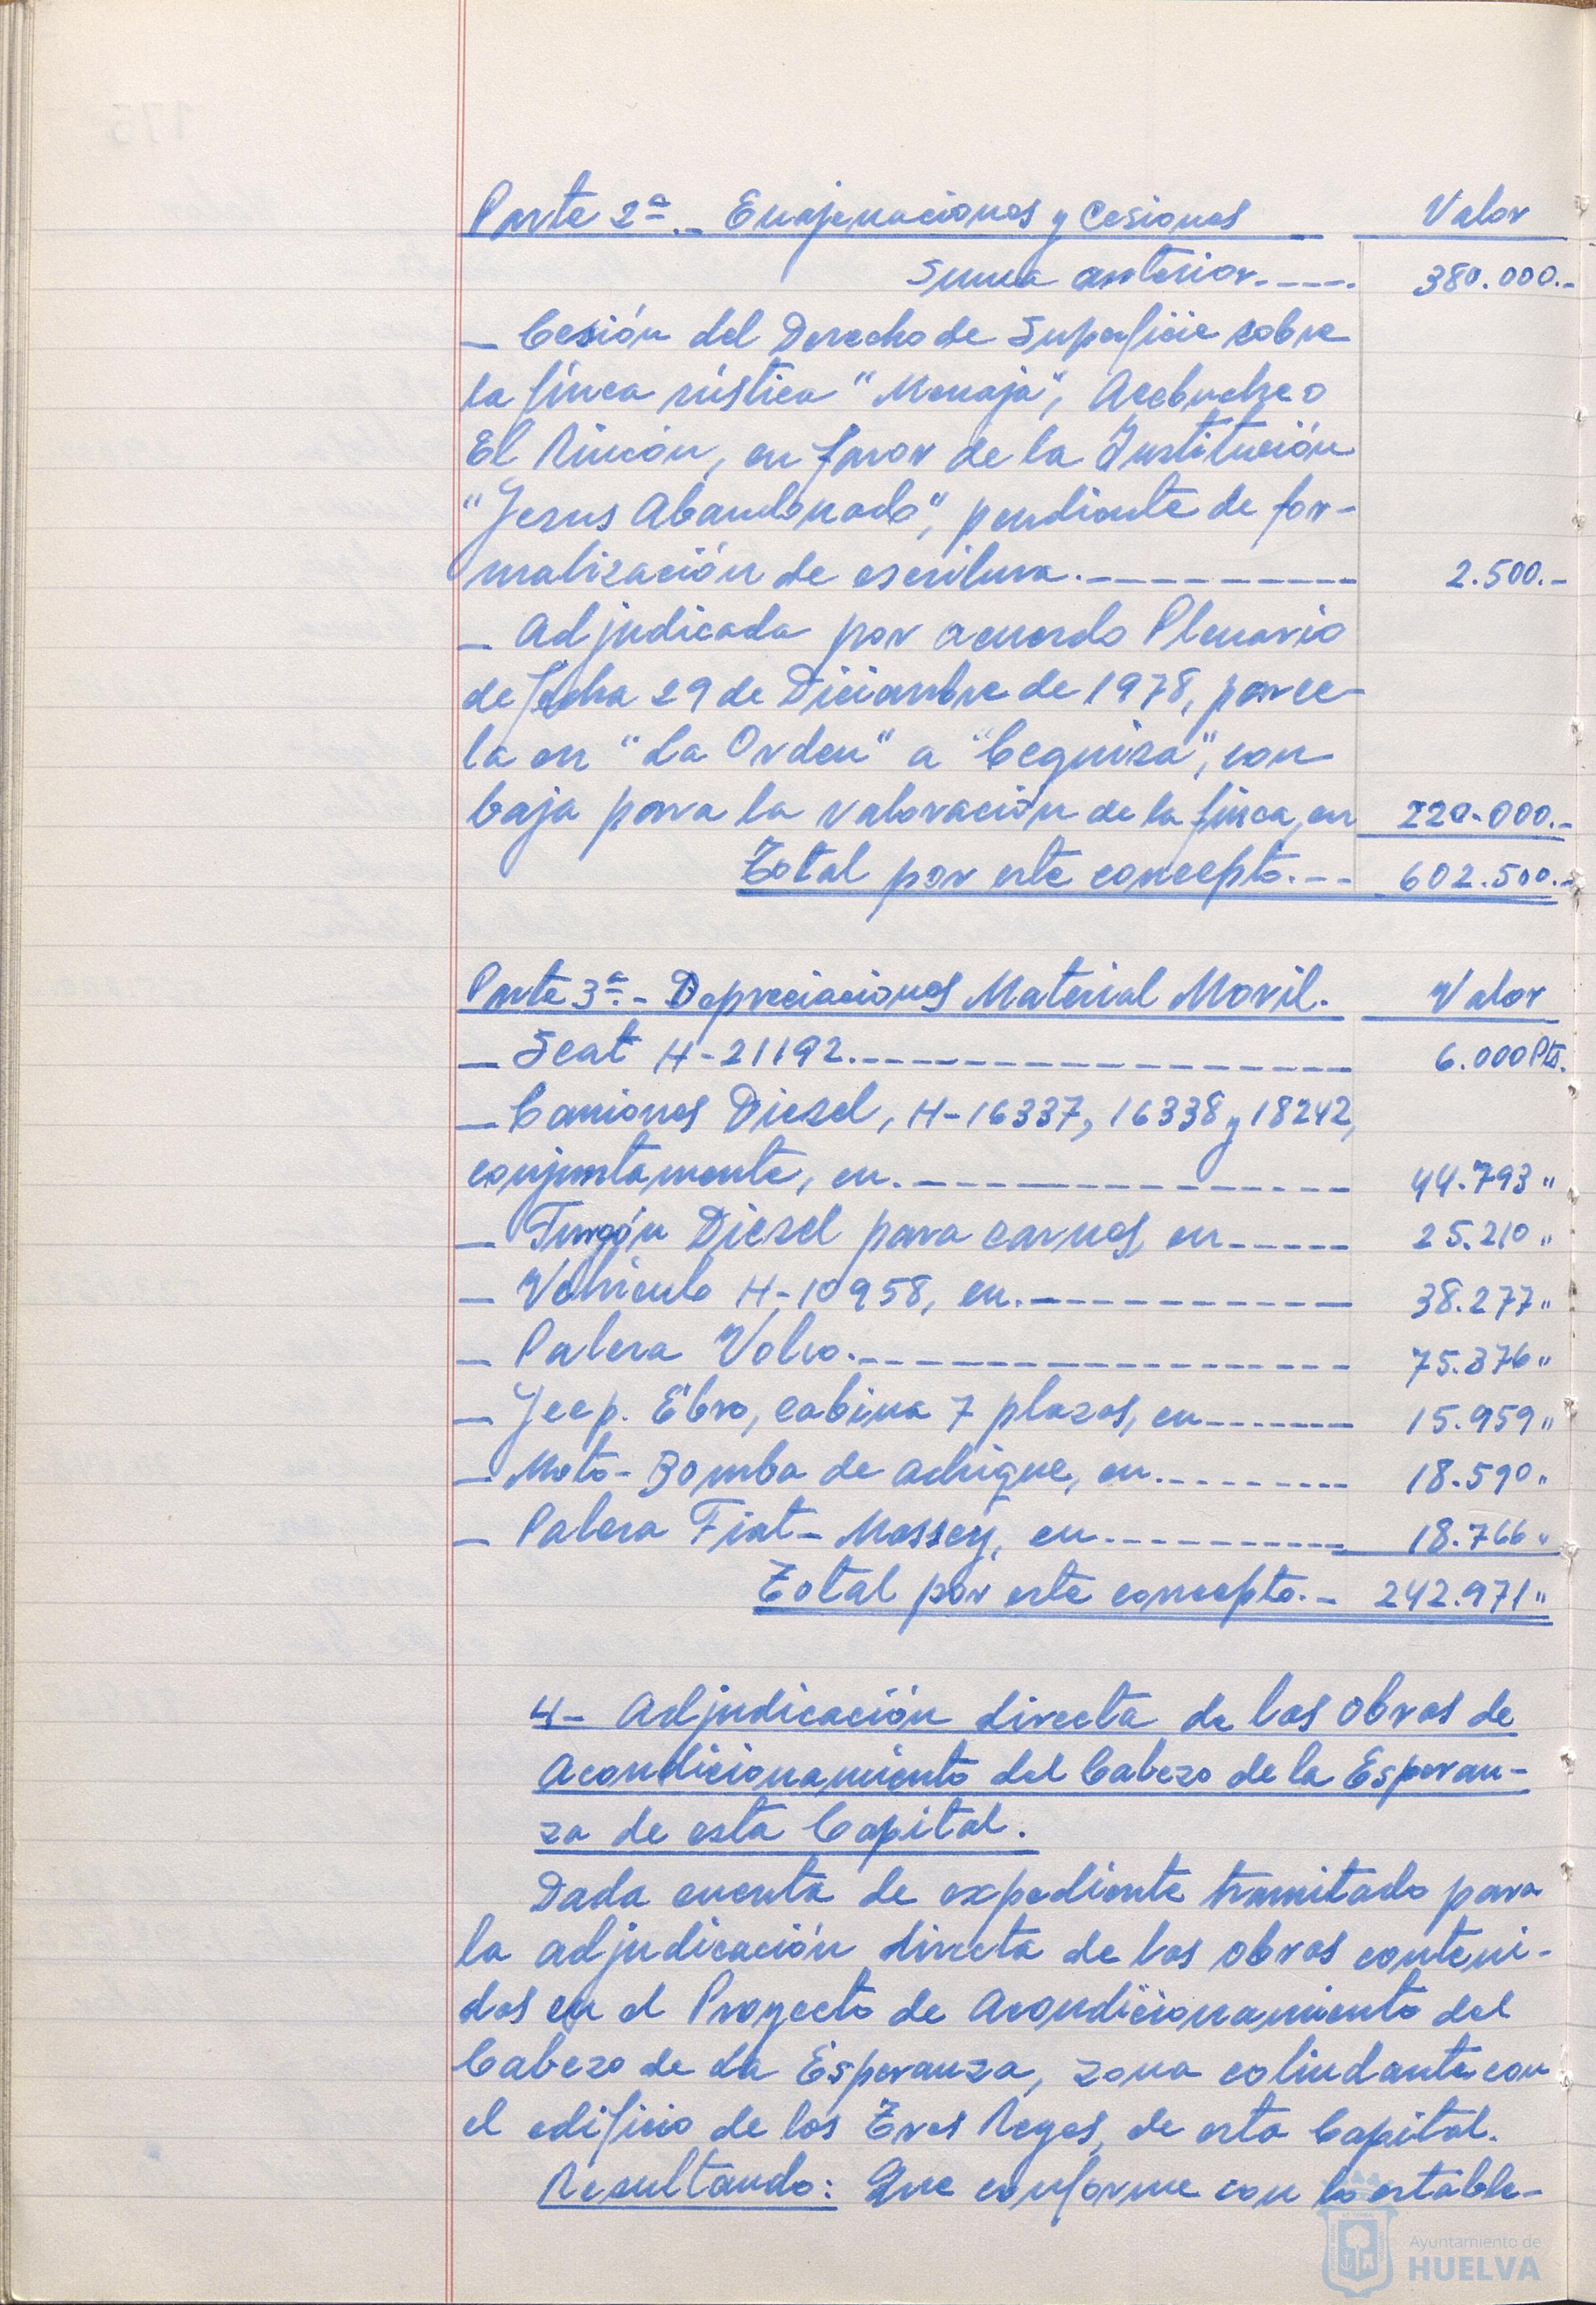 Parte 2ª.- Enajenaciones y Cesiones Valor
Suma anterior.---- 380.000.-
- Cesión del Derecho de Superficie sobre
la finca rústica "Monaja", Acebuche o
El Rincón, en favor de la Institución
"Jesus Abandonado", pendiente de for-
malización de escritura.---------- 2.500.-
- Adjudicada por acuerdo Plenario
de fecha 29 de Diciembre de 1978, parce-
la en "La Orden" a "Ceguisa", con
baja para la valoración de la finca, en 220.000.-
Total por este concepto.-- 602.500.-
Parte 3ª.- Depreciaciones Material Movil. Valor
- Seat H-21192.------------------ 6.000 Pts.
- Camiones Diesel, H-16337, 16338 y 18242,
conjuntamente, en.--------------- 44.793 "
- Furgón Diesel para carnes, en----- 25.210 "
- Vehículo H-10958, en.------------ 38.277 "
- Palera Volvo.------------------- 75.376 "
- Jeep. Ebro, cabina 7 plazas, en------- 15.959 "
- Moto-Bomba de achique, en.--------- 18.590 "
- Palera Fiat-Massey, en----------- 18.766 "
Total por este concepto.- 242.971 "
4- Adjudicación directa de las Obras de
Acondicionamiento del Cabezo de la Esperan-
za de esta Capital.
Dada cuenta de expediente tramitado para
la adjudicación directa de las obras conteni-
das en el Proyecto de Acondicionamiento del
Cabezo de La Esperanza, zona colindante con
el edificio de los Tres Reyes, de esta Capital.
Resultando: Que conforme con lo estable-
Ayuntamiento de
HUELVA